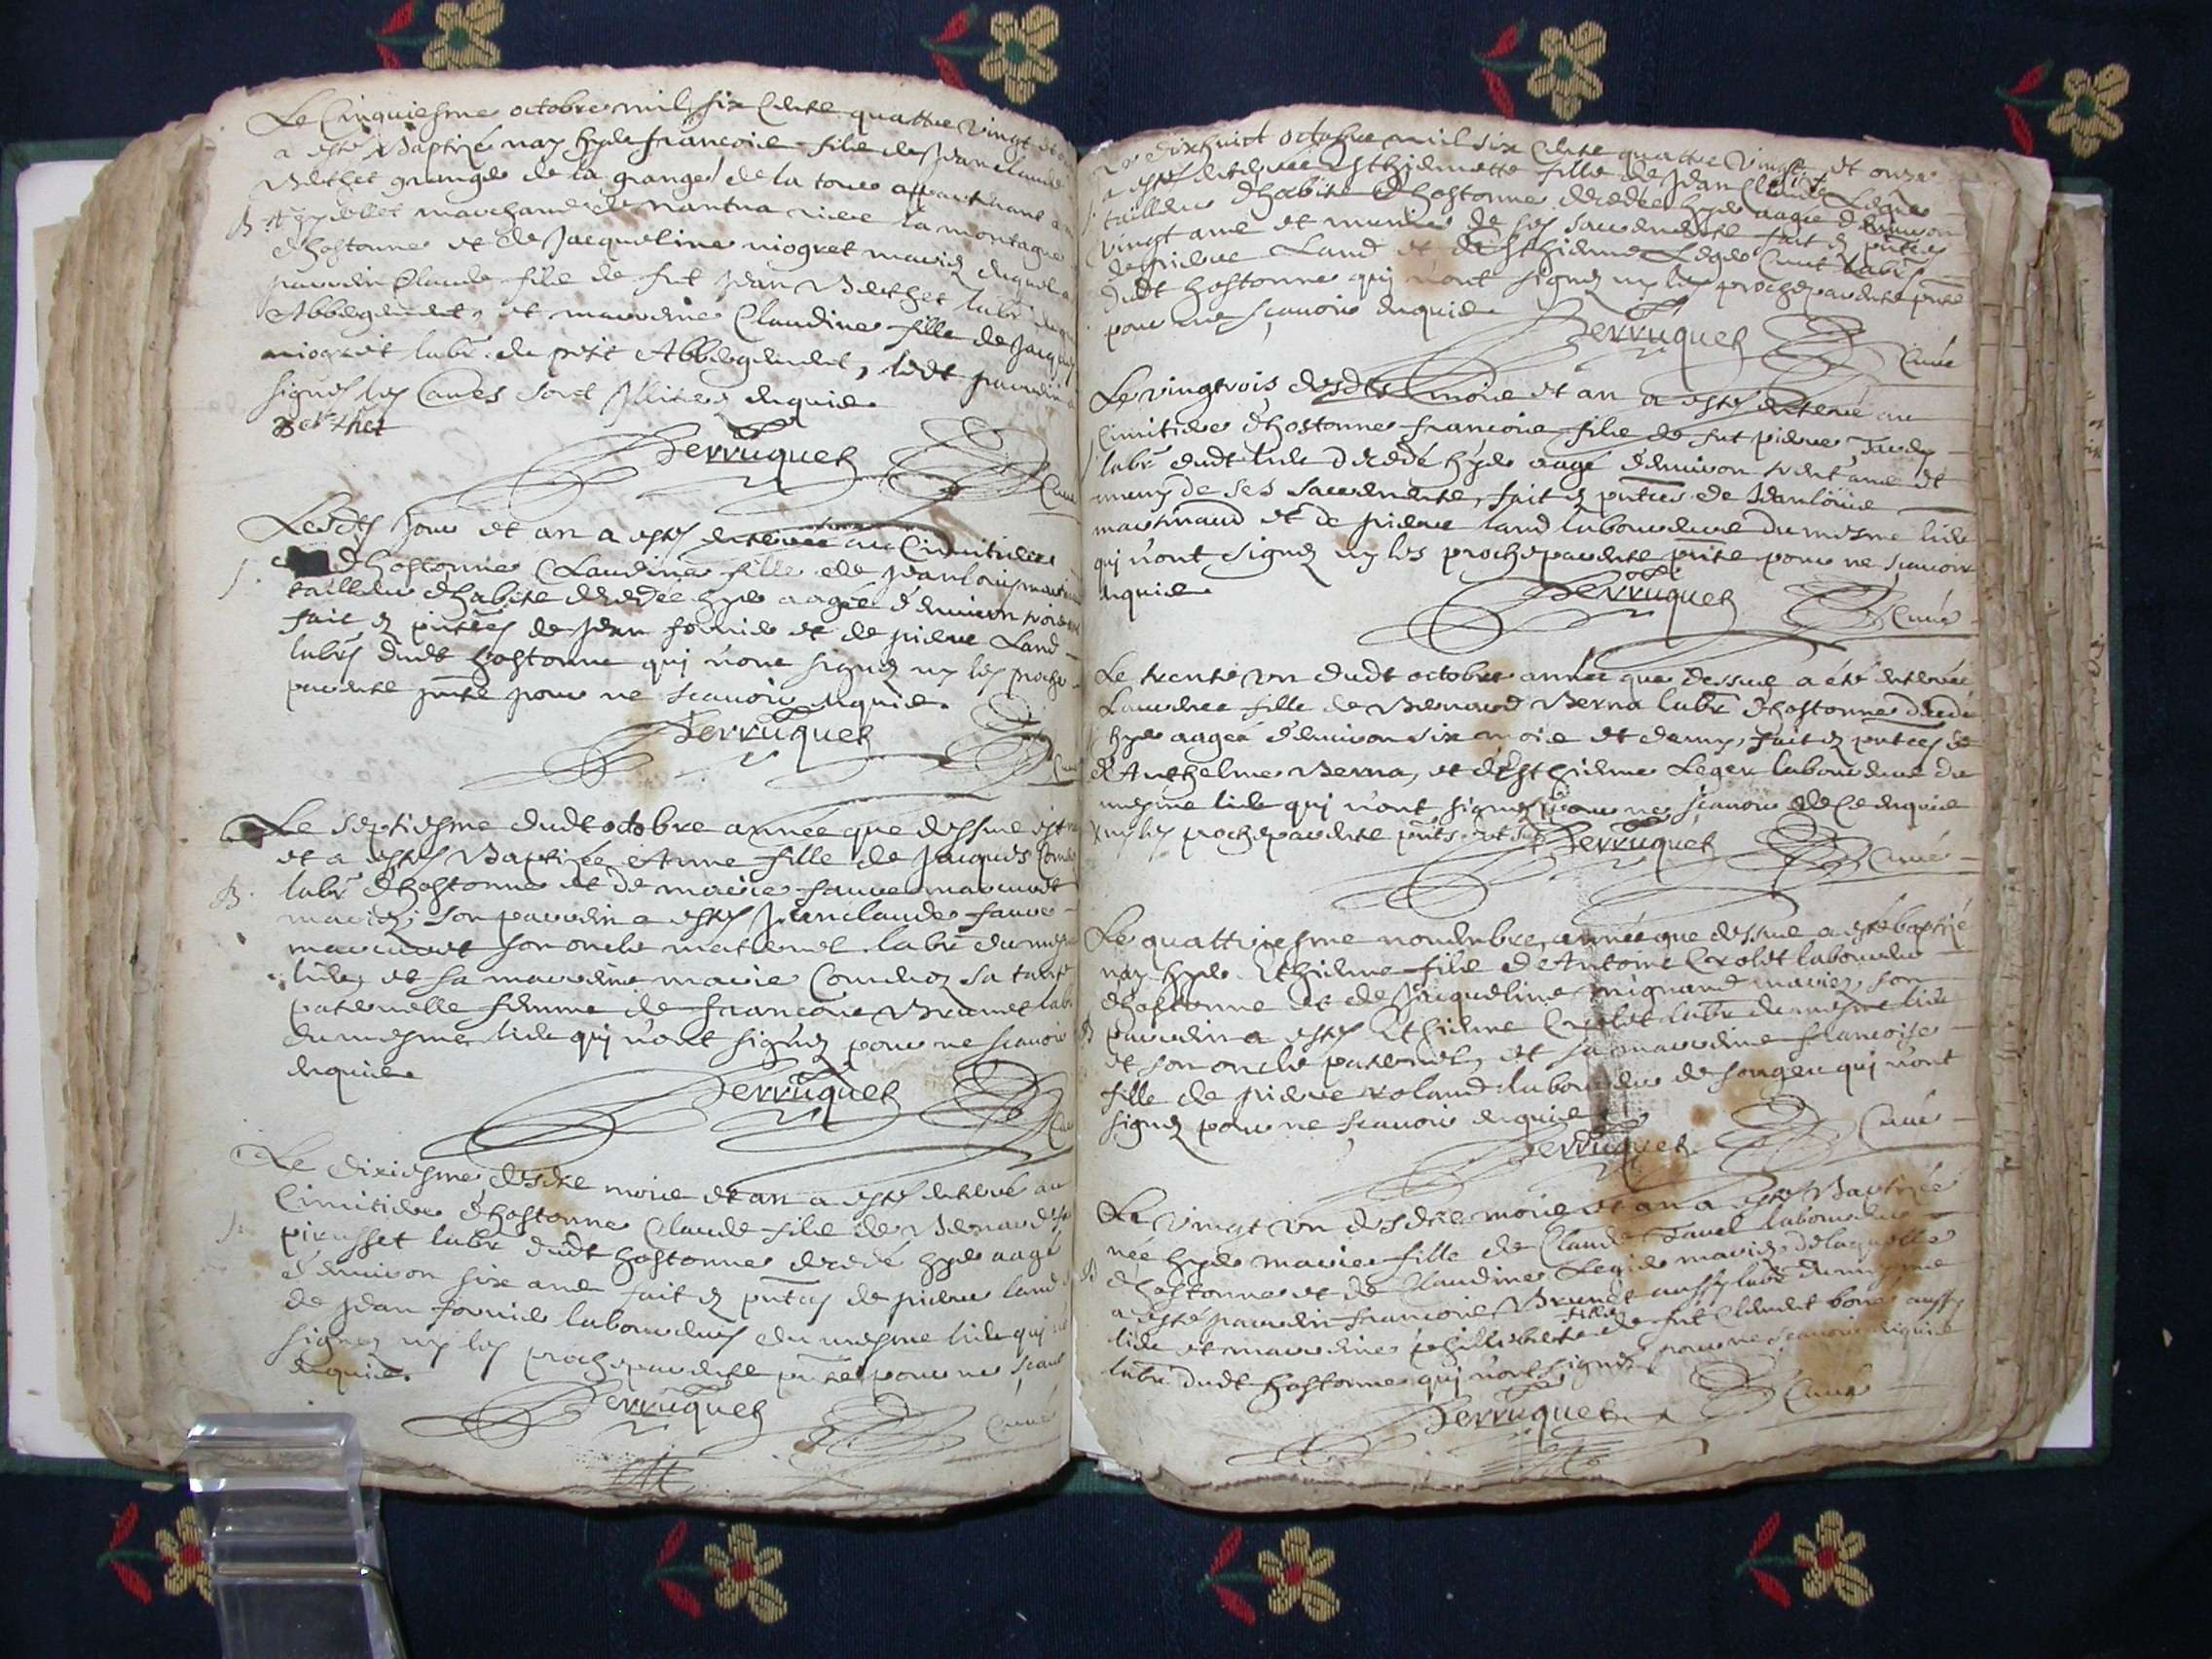 Le Cinquiesme octobre mil six Cents quattre vingt et
a esté Baptizé nay hyer francois fils de Jean claude
Berthet granger de la grange de la tour appartenant a
B marchand de nantua riere la montagne
d'hostonne et de Jacqueline niogret mariez duquel a
parrin Claude fils de fut Jean Berthet labr
Abbergement, et marrine Claudine fille de Jacques
niogret labr du petit Abbergement, ledt parrin a
signé les autres sont Illiterez enquis.
Berthet
Perruquet
Curé
Lesdts Jour et an a esté enterrée au Cimitiere
S. d'hostonne Claudine fille de Jean louis
tailleur d'habits decedée hyer aagée d'environ trois
fait ez pntces de Jean fornier et de pierre Land
labrs dudt hostonne qui n'ont signez ny les proches
parents pnts pour ne scavoir enquis.
Perruquet
Curé
Le septiesme dudt octobre année que dessus est
et a esté Baptizée Anne fille de Jacques
B. labr d'hostonne et de marie favre marmont
mariez; son parrin a esté Jeanclaude favre
marmont son oncle maternel labr du mesme
lieu, et sa marrine marie sa tante
paternelle femme de francois Brunet labr
du mesme lieu qui n'ont signez pour ne scavoir
enquis.
Perruquet
Curé
Le dixiesme desdts mois et an a esté enterré au
Cimitiere d'hostonne Claude fils de Bernard
S. pirusset labr dudt hostonne decedé hyer aagé
d'environ six ans fait ez pntces de pierre land
de Jean fornier laboureurs du mesme lieu qui
signez ny les proches parents pnts pour ne scavoir
enquis.
Perruquet
Curé
Le dixhuict octobre mil six Cents quattre vingt et onze
a esté enterrée Esthiennette fille de Jean Claude Leger
tailleur d'habits d'hostonne decedée hyer aagée d'environ
vingt ans et munie de ses sacrements fait ez pntces
de pierre Land et de Esthienne Leger labrs
dudt hostonne qui n'ont signez ny les proches parents pnts
pour ne scavoir enquis
Perruquet
Curé
Le vingtrois desdts mois et an a esté enterré au
Cimitiere d'hostonne francois fils de fut pierre
labr dudt lieu decedé hyer aagé d'environ ans et
muny de ses sacrements, fait ez pntces de Jean louis
martinaud et de pierre land laboureurs du mesme lieu
qui n'ont signez ny les proches parents pnts pour ne scavoir
enquis.
Perruquet
Curé
Le trente un dudt octobre année que dessus a été enterrée
Laurence fille de Bernard Berna labr d'hostonne decedée
hyer aagée d'environ six mois et demy, fait ez pntces de
d'Anthelme Berna, et d'Esthienne Leger laboureurs du
mesme lieu qui n'ont signez pour ne scavoir de ce enquis
x ny les proches parents pnts
Perruquet
Curé
Le quattriesme novembre, année que dessus a esté baptizé
nay hyer Ethienne fils d'Antoine Crolet laboureur
d'hostonne et de Jacqueline mignand mariez, son
B parrin a esté Ethienne Crolet labr du mesme lieu
et son oncle paternel, et sa marrine francoise
fille de pierre roland laboureur de songeu qui n'ont
signez pour ne scavoir enquis
Perruquet
Curé
Le vingt un desdts mois et an a esté Baptizée
née hyer marie fille de Claude Tavel laboureur
B d'hostonne et de Claudine Legier mariez de laquelle
a esté parrin francois Brunet aussy labr du mesme
lieu et marrine philliberte fille de fut Clement aussy
labr dudt hostonne qui n'ont signez pour ne scavoir enquis
Perruquet
Curé